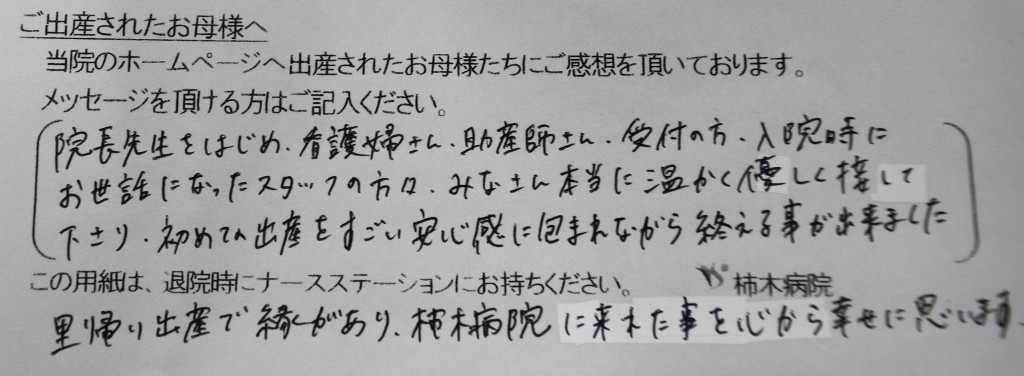 ご出産されたお母様へ
当院のホームページへ出産されたお母様たちにご感想を頂いております。
メッセージを頂ける方はご記入ください。
院長先生をはじめ、看護婦さん、助産師さん、受付の方、入院時に
お世話になったスタッフの方々、みなさん本当に温かく優しく接して
下さり、初めての出産をすごい安心感に包まれながら終える事が出来ました
この用紙は、退院時にナースステーションにお持ちください。 柿木病院
里帰り出産で縁があり、柿木病院に来れた事を心から幸せに思います。